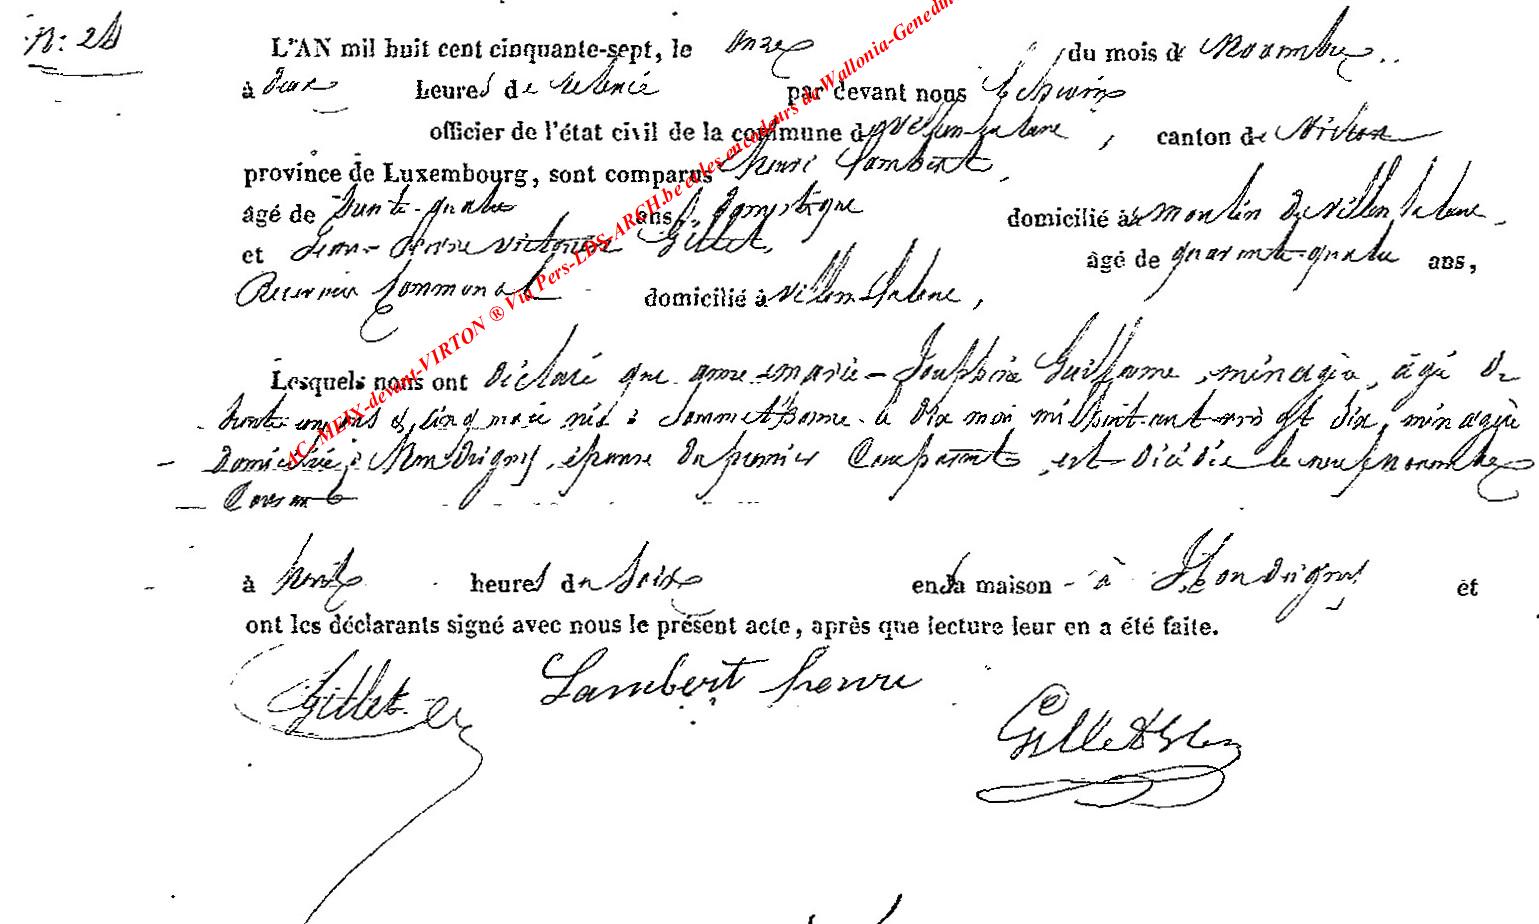 N: 28
L'AN mil huit cent cinquante-sept, le onze du mois de Novembre
à deux heures de relevé par devant nous Echevin
officier de l'état civil de la commune de Villers-la-loue, canton de Virton
province de Luxembourg, sont comparus henri Lambert,
âgé de trente-quatre ans, domestique domicilié à moulin de villers la loue
et Jean-Pierre Victorien Gillet, âgé de quarante-quatre ans,
Receveur Communal domicilié à villers-la loue,
Lesquels nous ont déclaré que anne-marie-Josephine Guillaume, ménagère, âgé de
trente ans & cinq mois née à Sommethonne le dix mai mil huit cent dix, ménagère
domiciliée à Houdrigny, épouse du premier Comparant, est décédée le neuf novembre
Courant
à heures du soir en sa maison à Houdrigny et
ont les déclarants signé avec nous le présent acte, après que lecture leur en a été faite.
Gillet Lambert henri
Gillet
AC-MEIX-devant-VIRTON ® Via Pers-LDS-ARCH.be et les encodeurs de Wallonia-Genedun